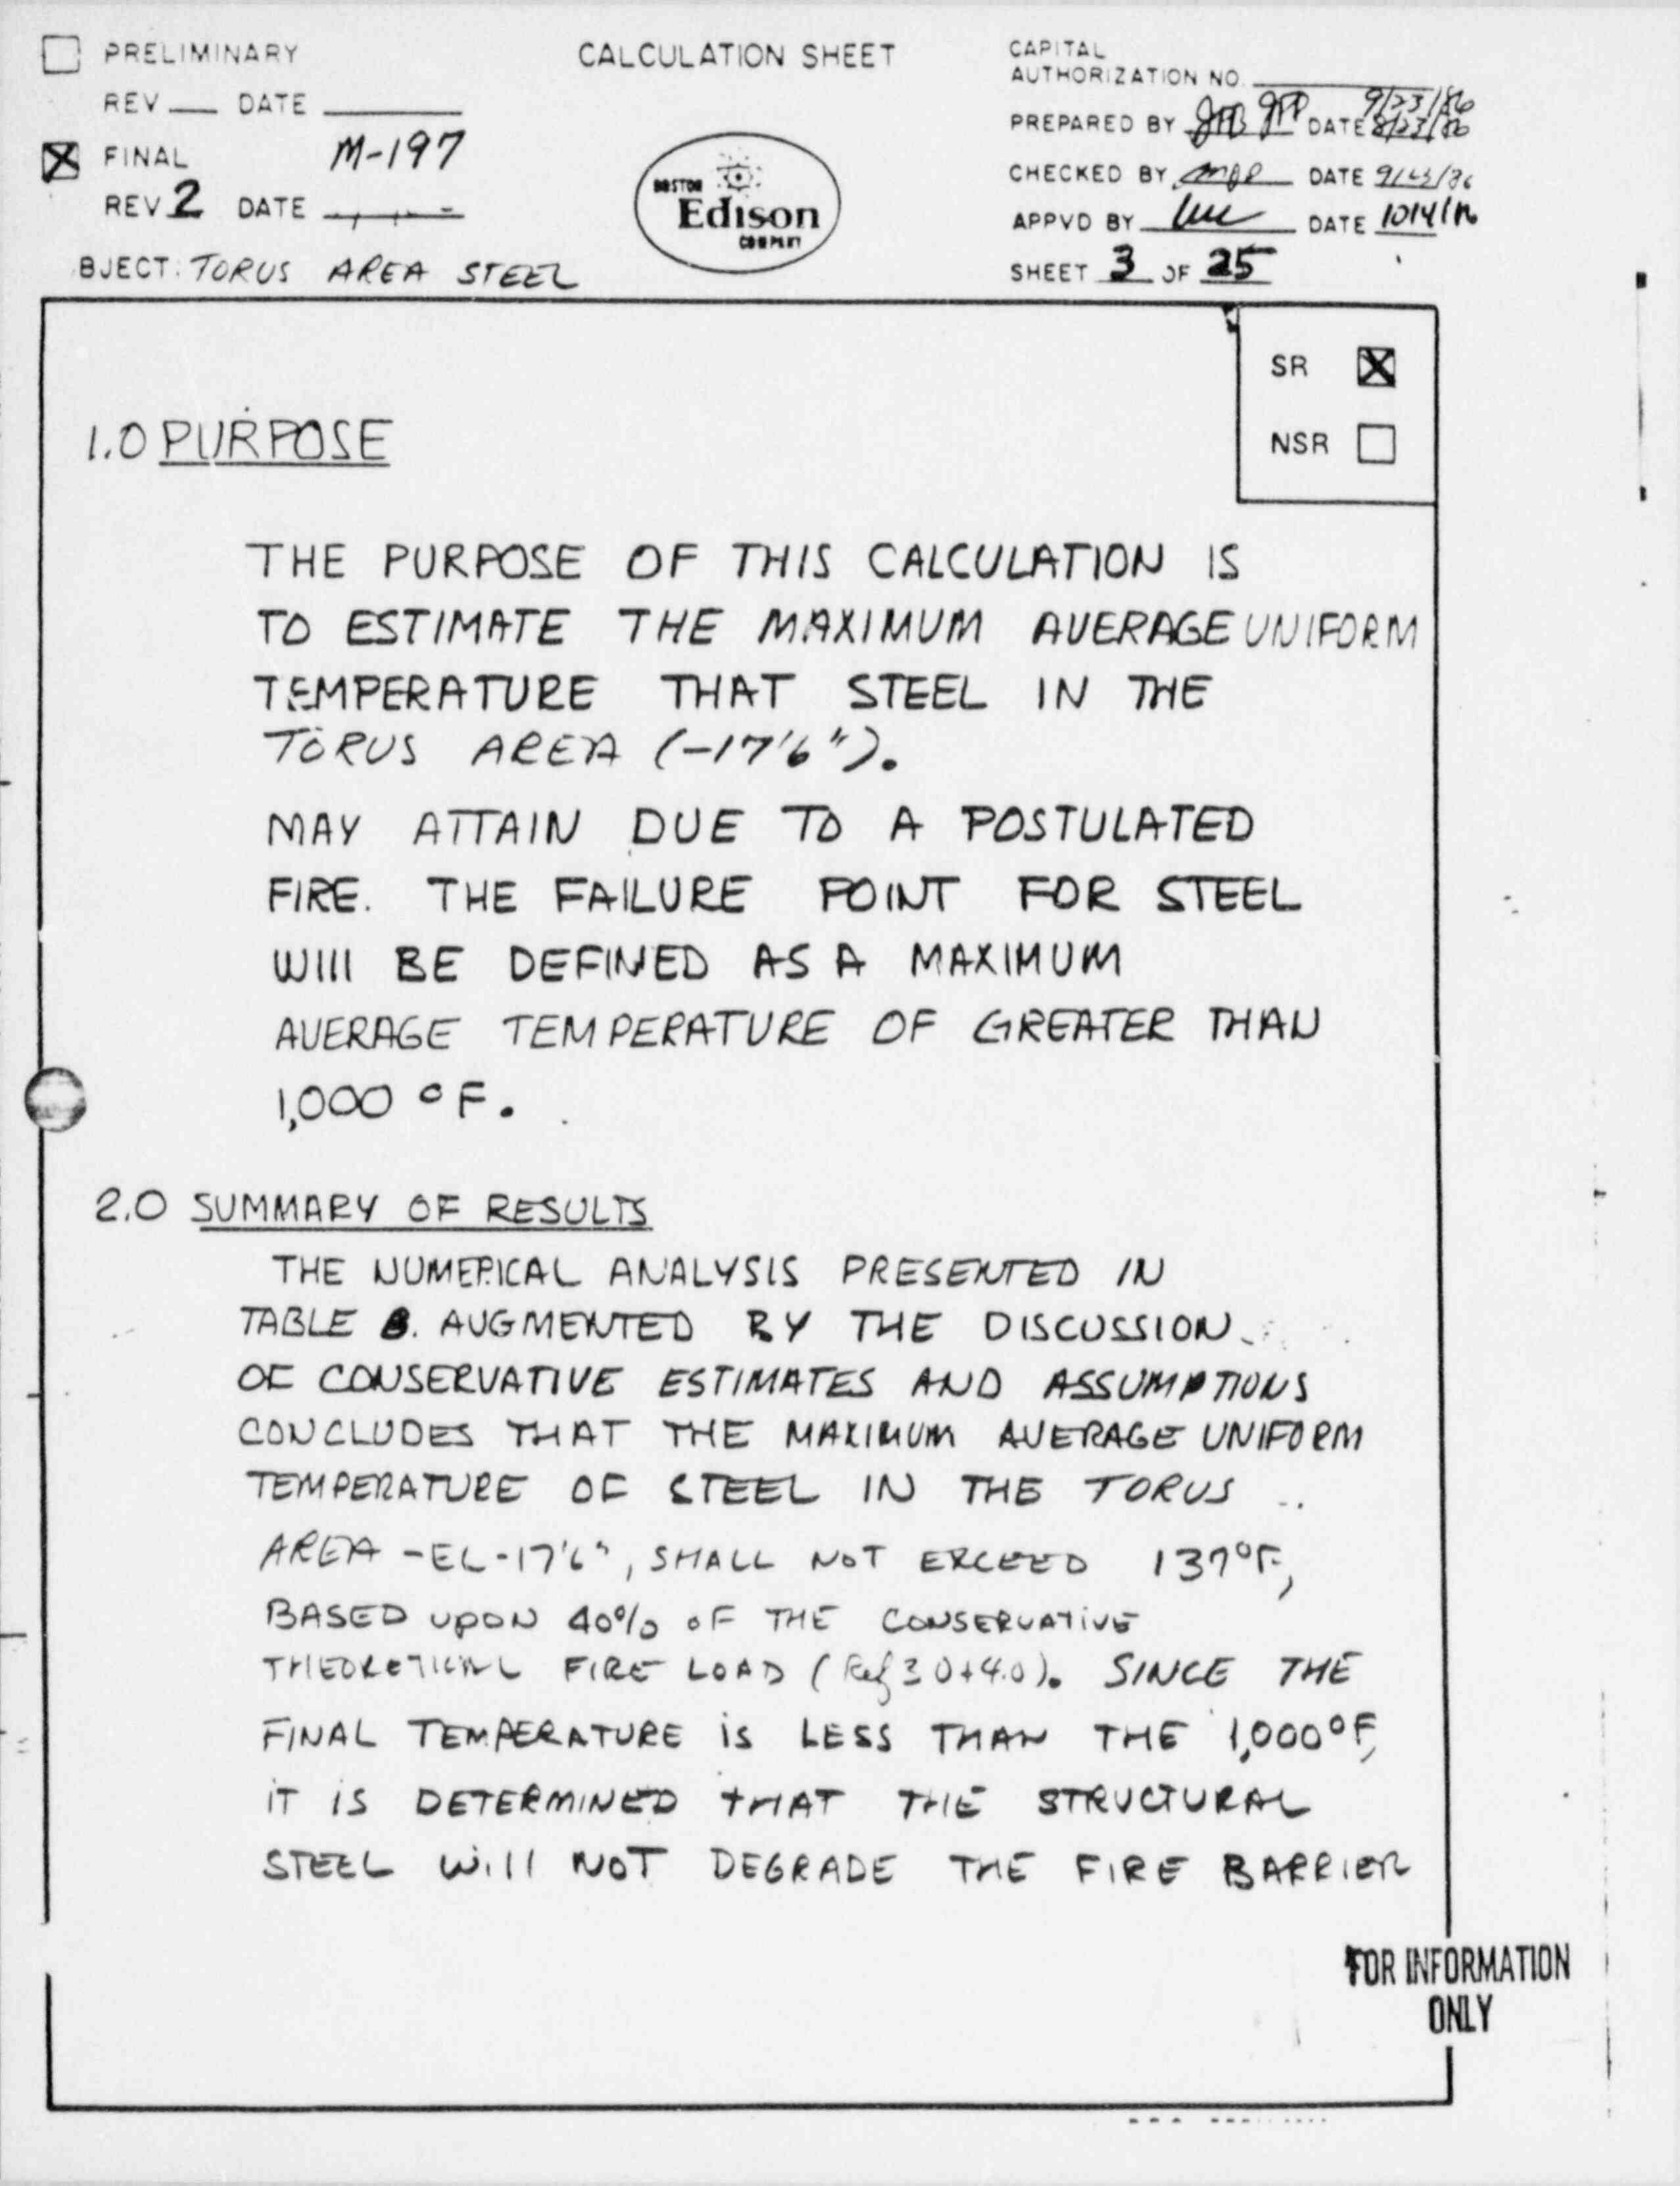 PRELIMINARY
REV DATE
FINAL M-197
REV 2 DATE
BJECT: TORUS AREA STEEL
CALCULATION SHEET
BOSTON
Edison
COMPANY
CAPITAL
AUTHORIZATION NO.
9/23/86
PREPARED BY DATE 8/23/86
CHECKED BY DATE
APPVD BY DATE
SHEET 3 OF 25
SR
NSR
1.0 PURPOSE
THE PURPOSE OF THIS CALCULATION IS
TO ESTIMATE THE MAXIMUM AVERAGE UNIFORM
TEMPERATURE THAT STEEL IN THE
TORUS AREA (-17'6").
MAY ATTAIN DUE TO A POSTULATED
FIRE. THE FAILURE POINT FOR STEEL
WIll BE DEFINED AS A MAXIMUM
AVERAGE TEMPERATURE OF GREATER THAN
1,000 °F.
2.0 SUMMARY OF RESULTS
THE NUMERICAL ANALYSIS PRESENTED IN
TABLE AUGMENTED BY THE DISCUSSION
OF CONSERVATIVE ESTIMATES AND ASSUMPTIONS
CONCLUDES THAT THE MAXIMUM AVERAGE UNIFORM
TEMPERATURE OF STEEL IN THE TORUS
AREA -EL-17'6", SHALL NOT EXCEED 137°F,
BASED UPON 40% OF THE CONSERVATIVE
THEORETICAL FIRE LOAD (Ref 3.0+4.0). SINCE THE
FINAL TEMPERATURE iS LESS THAN THE 1,000°F,
iT iS DETERMINED tHAT THE STRUCTURAL
STEEL Will NOT DEGRADE THE FIRE BARRIER
FOR INFORMATION
ONLY